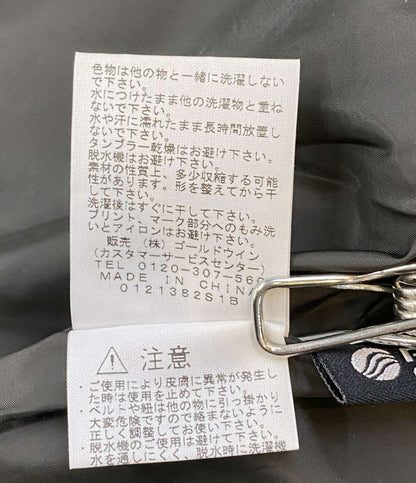 色物は他の物と一緒に洗濯しない
で下さい。
水につけたまま他の洗濯物と重ね
ないで下さい。
水や汗に濡れたまま長時間放置し
ないで下さい。
タンブラー乾燥はお避け下さい。
脱水機はお避け下さい。
素材の性質上、多少収縮する可能
性があります。形を整えてから干
して下さい。
洗濯後はすぐに干して下さい。
プリント、マーク部分へのもみ洗
いとアイロンはお避け下さい。
販売 (株) ゴールドウイン
(カスタマーサービスセンター)
TEL 0120-307-56
MADE IN CHINA
0121382S1B
注意
・ご使用により皮膚に異常が発生し
た時は使用を止めて下さい。
・ベルトや紐は他の物に引っ掛かり
大変危険ですので絡まないように
正しく調整してお使い下さい。
・脱水機のご使用は避けて下さい。
水を通しにくく、脱水時に洗濯機